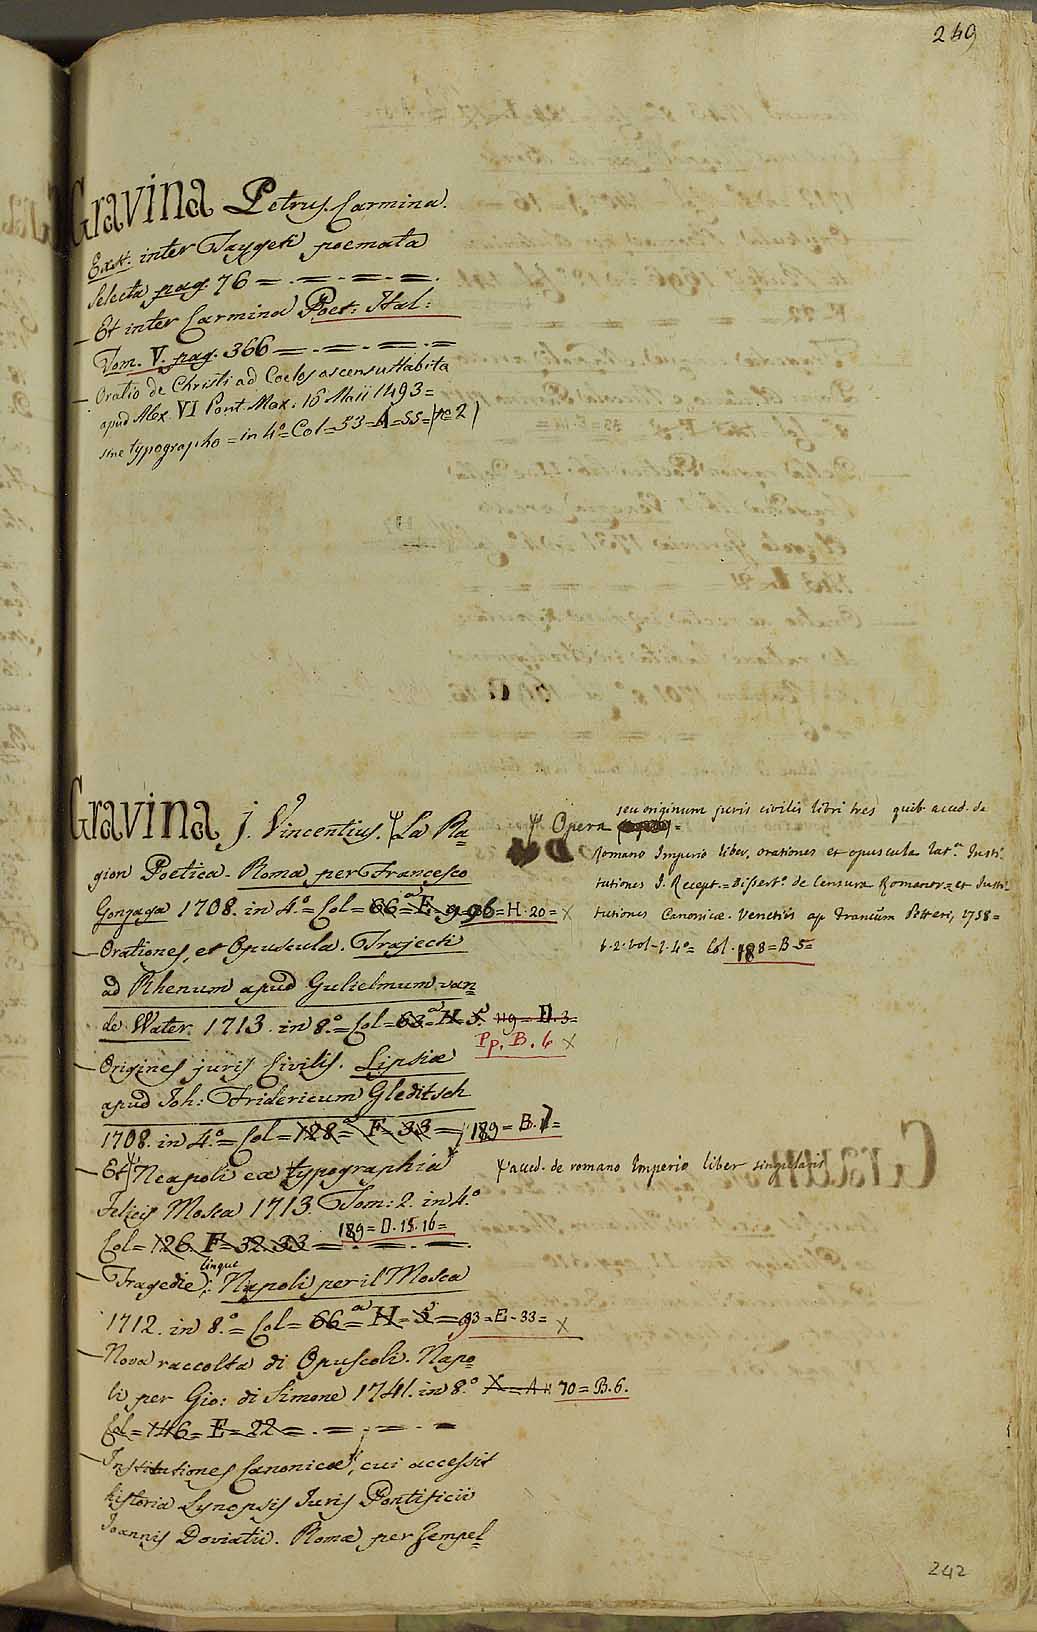 249
Gravina Petrus. Carmina.
Ext. inter Jaygeti poemata
Selecta pag. 76 = . = . = . = .
— Et inter Carmina Poet: Ital:
Tom. V. pag. 366 = . = . = . =
— Oratio de Christi ad Coelos ascensu Habita
apud Alex. VI Pont. Max: 16 Maii 1493 =
sine typographo = in 4.º = Col = 53 = A = 55 = (nº 2)
Gravina J. Vincentius. La Ra=
gion Poetica. Roma per Francesco
Gonzaga 1708. in 4.º = Col = 66 = E = 9 96 = H. 20 = X
— Orationes, et Opuscula. Trajecti
ad Rhenum apud Gulielmum van=
de Water. 1713. in 8.º = Col = 63 = H = 5. 119 = D. 3 =
Pp. B. 6 X
— Origines juris Civilis. Lipsiae
apud Joh: Fridericum Gleditsch
1708. in 4.º = Col = 128 = F = 33 = 189 = B. 7 =
— Et Neapoli ex typographia
Felicis Mosca 1713. Tom: 2. in 4.º
189 = D. 15. 16 =
Col = 126 F = 32. 33 = . = . = .
— Tragedie cinque: Napoli per il Mosca
1712. in 8.º = Col = 66 = H = 5 = 93 = E = 33 = X
— Nova raccolta di Opuscoli. Napo=
li per Gio: di Simone 1741. in 8.º X = A = 11 70 = B. 6.
Col = 146 = E = 22 = . = . = . =
— Institutiones Canonicae, cui accessit
historia Synopsis Juris Pontificii
Joannis Doviatii. Romae per Zempel=
Opera
seu originum juris civilis libri tres quib. acced. de
Romano Imperio liber, orationes et opuscula lat.ª Insti=
tutiones J. Recept. = Dissert.º de Censura Romanor. = et Insti=
tutiones Canonicae. Venetiis ap Francum Pitteri, 1758 =
t. 2. vol. 2. 4º = Col. 188 = B 5 =
acced. de romano Imperio liber singularis
242